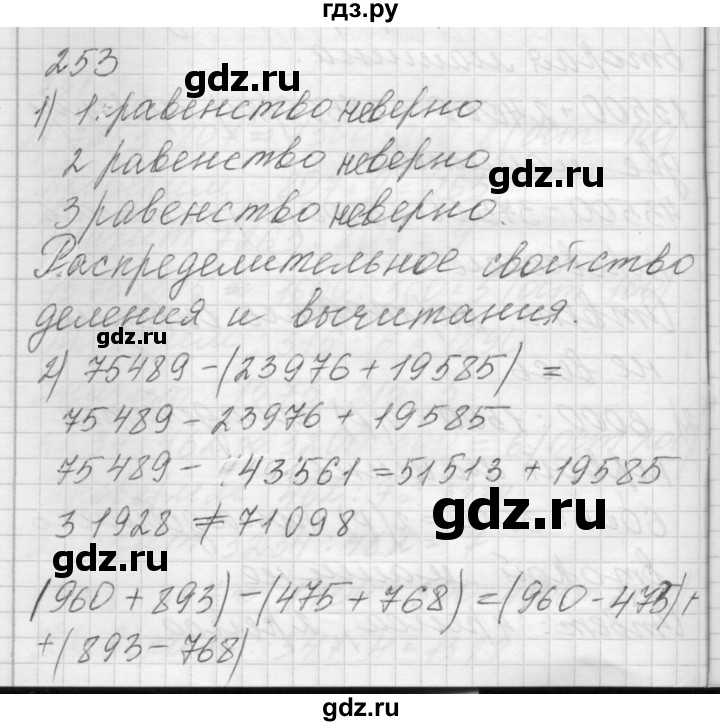 гдз.ру
253
gdz.ru
1) 1. равенство неверно
2 равенство неверно
gdz.ru
3 равенство неверно.
Распределительное свойство
деления и вычитания.
gdz.ru
2) 75489 - (23976 + 19585) =
75489 - 23976 + 19585
75489 - 43561 = 51513 + 19585
gdz.ru
31928 ≠ 71098
gdz.ru
(960 + 893) - (475 + 768) = (960 - 475) +
+ (893 - 768)
gdz.ru